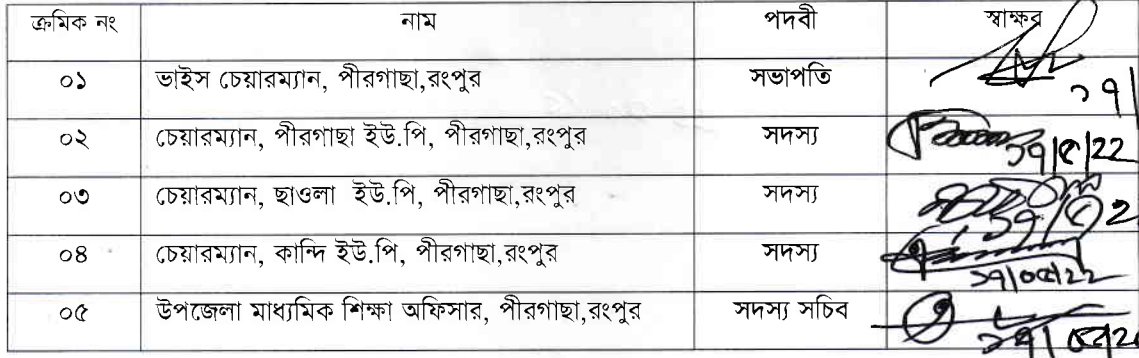 ক্রমিক নং নাম পদবী স্বাক্ষর
০১ ভাইস চেয়ারম্যান, পীরগাছা,রংপুর সভাপতি ১৭|
০২ চেয়ারম্যান, পীরগাছা ইউ.পি, পীরগাছা,রংপুর সদস্য ১৭|৫|22
০৩ চেয়ারম্যান, ছাওলা ইউ.পি, পীরগাছা,রংপুর সদস্য
০৪ চেয়ারম্যান, কান্দি ইউ.পি, পীরগাছা,রংপুর সদস্য ১৭|০৫|২২
০৫ উপজেলা মাধ্যমিক শিক্ষা অফিসার, পীরগাছা,রংপুর সদস্য সচিব